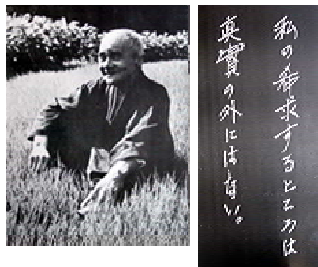 私の希求するところは
真實の外にはない。